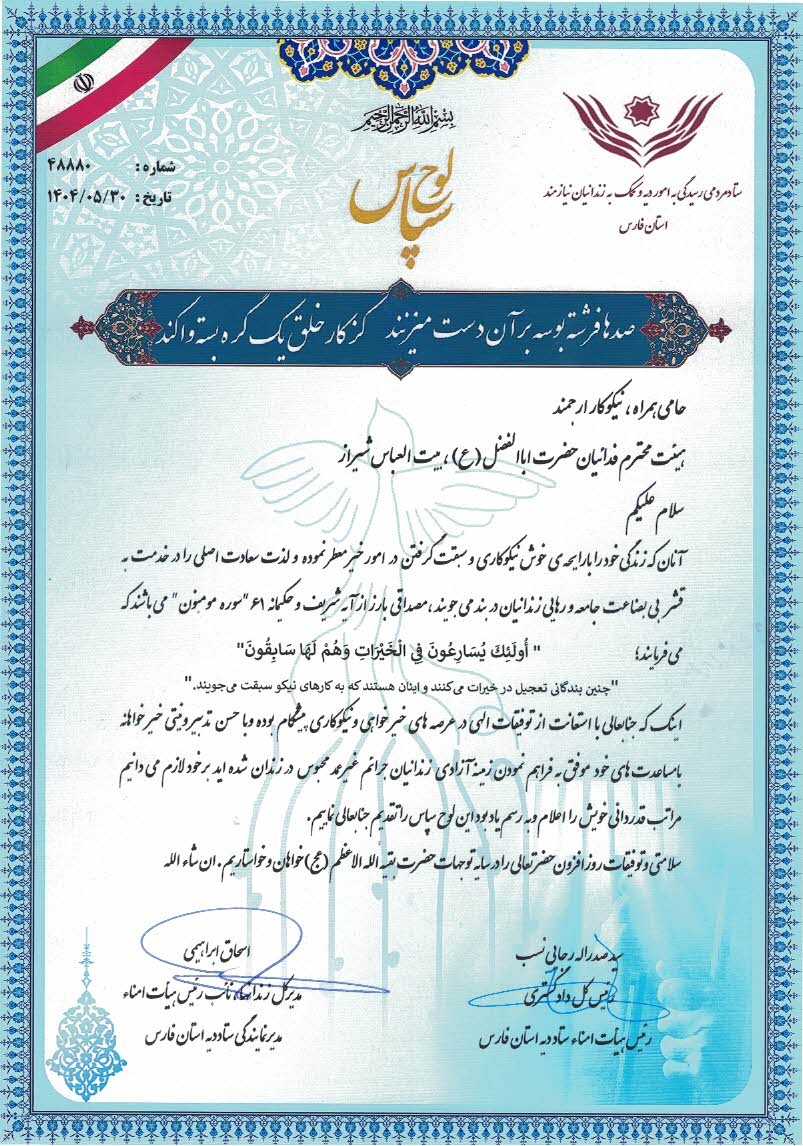 بسم الله الرحمن الرحیم
ستاد مردمی رسیدگی به امور دیه و کمک به زندانیان نیازمند
استان فارس
شماره : ۴۸۸۸۰
تاریخ : ۱۴۰۴/۰۵/۳۰
لوح سپاس
صدها فرشته بوسه بر آن دست میزنند کز کار خلق یک گره بسته وا کند
حامی همراه ، نیکوکار ارجمند
هیئت محترم فدائیان حضرت ابالفضل (ع) ، بیت العباس شیراز
سلام علیکم
آنان که زندگی خود را با رایحه ی خوش نیکوکاری و سبقت گرفتن در امور خیر معطر نموده و لذت سعادت اصلی را در خدمت به
قشر بی بضاعت جامعه و رهایی زندانیان در بند می جویند ، مصداقی بارز از آیه شریف و حکیمانه ۶۱ "سوره مومنون" می باشند که
می فرمایند؛ " أُولَئِكَ يُسَارِعُونَ فِي الْخَيْرَاتِ وَهُمْ لَهَا سَابِقُونَ"
"چنین بندگانی تعجیل در خیرات می‌کنند و اینان هستند که به کارهای نیکو سبقت می‌جویند."
اینک که جنابعالی با استعانت از توفیقات الهی در عرصه های خیرخواهی و نیکوکاری پیشگام بوده و با حسن تدبیر و نیتی خیرخواهانه
با مساعدت های خود موفق به فراهم نمودن زمینه آزادی زندانیان جرائم غیر عمد محبوس در زندان شده اید بر خود لازم می دانیم
مراتب قدردانی خویش را اعلام و به رسم یادبود این لوح سپاس را تقدیم جنابعالی نماییم.
سلامتی و توفیقات روزافزون حضرتعالی را در سایه توجهات حضرت بقیه الله الاعظم (عج) خواهان و خواستاریم . ان شاء الله
سید صدراله رجائی نسب
رئیس کل دادگستری
رئیس هیأت امناء ستاد دیه استان فارس
اسحاق ابراهیمی
مدیرکل زندانها، نائب رئیس هیأت امناء
مدیر نمایندگی ستاد دیه استان فارس